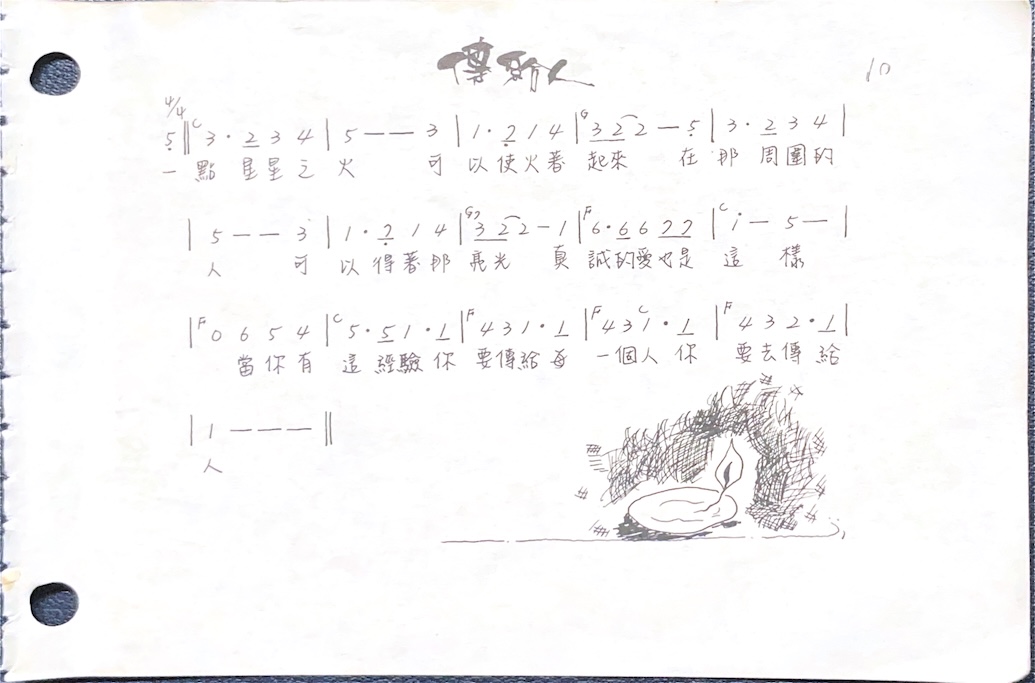 傳薪人
10
4/4
C G C
5 || 3 · 2 3 4 | 5 — — 3 | 1 · 2 1 4 | 3 2 2 — 5 | 3 · 2 3 4 |
一點星星之火 可以使火著起來 在那周圍的
G7 F C
| 5 — — 3 | 1 · 2 1 4 | 3 2 2 — 1 | 6 · 6 6 7 7 | i — 5 — |
人 可以得著那亮光 真誠的愛也是這樣
F C F F C F
| 0 6 5 4 | 5 · 5 1 · 1 | 4 3 1 · 1 | 4 3 1 · 1 | 4 3 2 · 1 |
當你有這經驗你要傳給每一個人你要去傳給
| 1 — — — ||
人